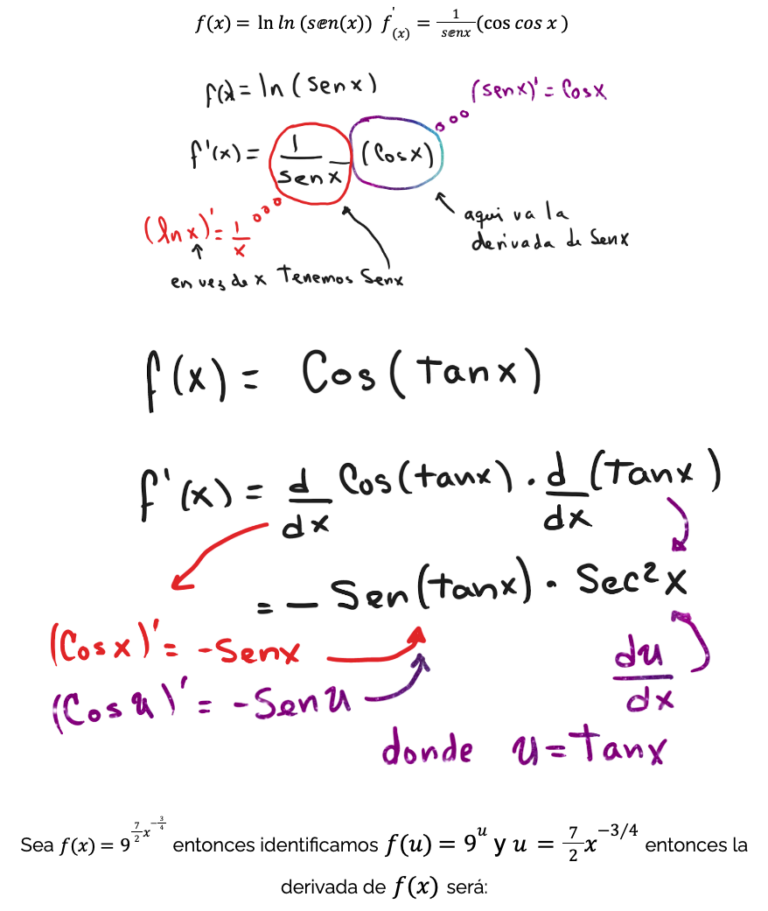 f(x) = ln ln (sen(x)) f'(x) = 1/senx (cos cos x )
f(x) = ln (Senx)
(senx)' = Cosx
f'(x) = 1/senx (Cosx)
(lnx)' = 1/x
aqui va la
derivada de Senx
en vez de x Tenemos Senx
f(x) = Cos(Tanx)
f'(x) = d/dx Cos(tanx) · d/dx (Tanx)
= - Sen(tanx) · Sec²x
(Cosx)' = -Senx
(Cos u)' = -Sen u
du/dx
donde u = Tanx
Sea f(x) = 9^(7/2 x^(-3/4)) entonces identificamos f(u) = 9^u y u = 7/2 x^(-3/4) entonces la
derivada de f(x) será: